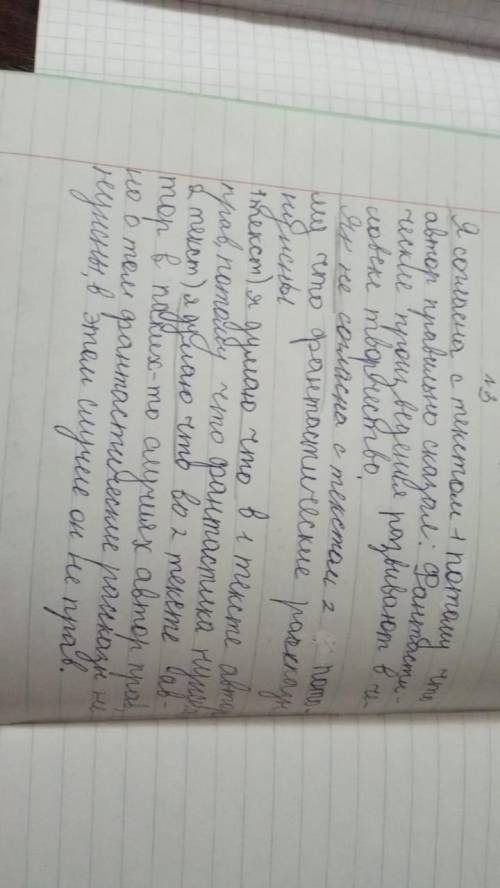 №3
Я согласна с текстом 1 потому что
автор правильно сказал: Фантасти-
ческие произведения развивают в че-
ловеке творчество.
Я не согласна с текстом 2 пото-
му что фантастические рассказы
нужны
1 текст) я думаю что в 1 тексте автор
прав, потому что фантастика нужна
2 текст) я думаю что во 2 тексте ав-
тор в каких-то случаях автор прав,
но о том фантастические рассказы не
нужны, в этом случае он не прав.